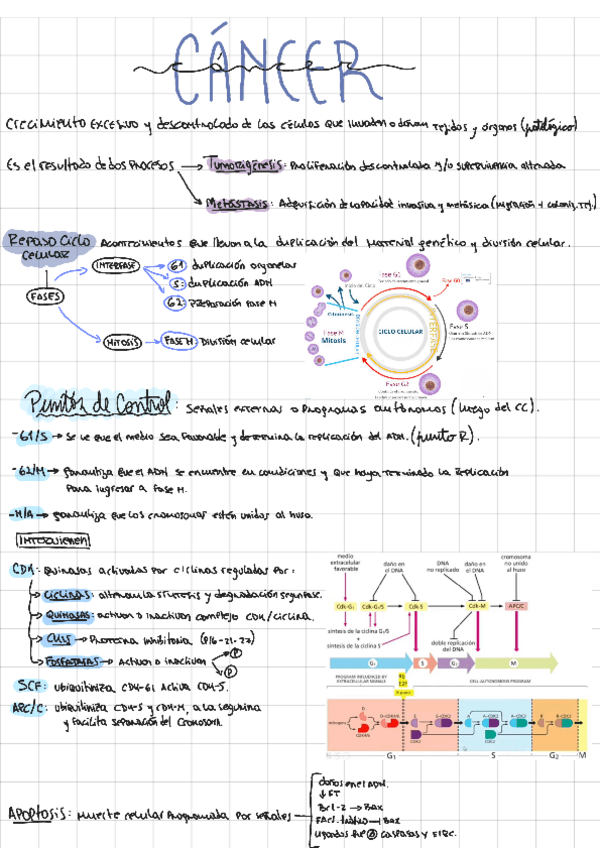 CÁNCER
cáncer
CRECIMIENTO EXCESIVO y descontrolado de las células que invaden o dañan tejidos y órganos (patológico)
Es el resultado de dos procesos → Tumorigénesis: Proliferación descontrolada y/o supervivencia alterada
→ Metástasis: Adquisición de capacidad invasiva y metásica (migración + coloniz. Tej.)
REPASO CICLO CELULAR Acontecimientos que llevan a la duplicación del material genético y división celular.
FASES
INTERFASE
G1 duplicación organelas
S: duplicación ADN
G2: Preparación fase M
MITOSIS → FASE M: División celular
Fase G1
Fase G0
Inicio del Ciclo
Citocinesis
Fase M
Mitosis
CICLO CELULAR
INTERFASE
Fase S
Fase G2
Puntos de Control: Señales externas o Programas autónomos (luego del CC).
-G1/S → Se ve que el medio sea favorable y determina la replicación del ADN. (punto R).
-G2/M → garantiza que el ADN se encuentre en condiciones y que haya terminado la replicación
para ingresar a Fase M.
-M/A → garantiza que los cromosomas estén unidos al huso.
INTERVIENEN
CDK: Quinasas activadas por ciclinas reguladas por:
→ CICLINAS: alternan la síntesis y degradación según fase.
→ QUINASAS: activan o inactivan complejo CDK/ciclina.
→ CKIS → Proteína inhibitoria (P16-21-27)
→ FOSFATASAS → Activan o inactivan
P
P
SCF: Ubiquitiniza CDK-G1 Activa CDK-S.
APC/C: Ubiquitiniza CDK-S y CDK-M, a la segurina
y facilita separación del cromosoma.
medio extracelular favorable
daño en el DNA
DNA no replicado
daño en el DNA
cromosoma no unido al huso
Cdk-G₁
Cdk-G₁/S
Cdk-S
Cdk-M
APC/C
síntesis de la ciclina G₁/S
síntesis de la ciclina S
doble replicación del DNA
G₁
S
G₂
M
PROGRAM INFLUENCED BY EXTRACELLULAR SIGNALS
CELL-AUTONOMOUS PROGRAM
Rb
E2F
R point
mitogens
D
D-CDK4/6
CDK4/6
E
E-CDK2
CDK2
A-CDK2
A-CDK1
B-CDK1
G₁
S
G₂
M
APOPTOSIS: Muerte celular programada por señales
daños en el ADN.
↓ FT
Bcl-2 → Bax